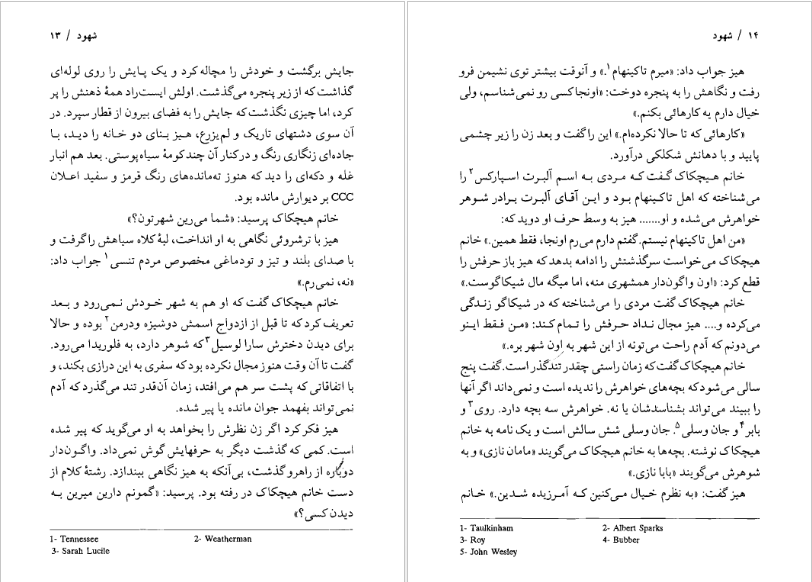 شهود / ۱۳
جایش برگشت و خودش را مچاله کرد و یک پایش را روی لوله‌ای
گذاشت که از زیر پنجره می‌گذشت. اولش ایست‌راد همهٔ ذهنش را پر
کرد، اما چیزی نگذشت که جایش را به فضای بیرون از قطار سپرد. در
آن سوی دشتهای تاریک و لم‌یزرع، هیز بنای دو خانه را دید، با
جاده‌ای زنگاری رنگ و درکنار آن چند کومهٔ سیاه‌پوستی. بعد هم انبار
غله و دکه‌ای را دید که هنوز ته‌مانده‌های رنگ قرمز و سفید اعلان
CCC بر دیوارش مانده بود.
خانم هیچکاک پرسید: «شما می‌رین شهرتون؟»
هیز با ترشروئی نگاهی به او انداخت، لبهٔ کلاه سیاهش راگرفت و
با صدای بلند و تیز و تودماغی مخصوص مردم تنسی۱ جواب داد:
«نه، نمی‌رم.»
خانم هیچکاک گفت که او هم به شهر خودش نمی‌رود و بعد
تعریف کرد که تا قبل از ازدواج اسمش دوشیزه ودرمن۲ بوده و حالا
برای دیدن دخترش سارا لوسیل۳ که شوهر دارد، به فلوریدا می‌رود.
گفت تا آن وقت هنوز مجال نکرده بود که سفری به این درازی بکند، و
با اتفاقاتی که پشت سر هم می‌افتد، زمان آن‌قدر تند می‌گذرد که آدم
نمی‌تواند بفهمد جوان مانده یا پیر شده.
هیز فکر کرد اگر زن نظرش را بخواهد به او می‌گوید که پیر شده
است. کمی که گذشت دیگر به حرفهایش گوش نمی‌داد. واگون‌دار
دوباره از راهرو گذشت، بی‌آنکه به هیز نگاهی بیندازد. رشتهٔ کلام از
دست خانم هیچکاک در رفته بود. پرسید: «گمونم دارین میرین به
دیدن کسی؟»
1- Tennessee 2- Weatherman
3- Sarah Lucile
۱۴ / شهود
هیز جواب داد: «میرم تاکینهام۱.» و آنوقت بیشتر توی نشیمن فرو
رفت و نگاهش را به پنجره دوخت: «اونجا کسی رو نمی‌شناسم، ولی
خیال دارم یه کارهائی بکنم.»
«کارهائی که تا حالا نکرده‌ام.» این را گفت و بعد زن را زیر چشمی
پایید و با دهانش شکلکی درآورد.
خانم هیچکاک گفت که مردی به اسم آلبرت اسپارکس۲ را
می‌شناخته که اهل تاکینهام بود و این آقای آلبرت برادر شوهر
خواهرش می‌شده و او....... هیز به وسط حرف او دوید که:
«من اهل تاکینهام نیستم. گفتم دارم می‌رم اونجا، فقط همین.» خانم
هیچکاک می‌خواست سرگذشتش را ادامه بدهد که هیز باز حرفش را
قطع کرد: «اون واگون‌دار همشهری منه، اما میگه مال شیکاگوست.»
خانم هیچکاک گفت مردی را می‌شناخته که در شیکاگو زندگی
می‌کرده و.... هیز مجال نداد حرفش را تمام کند: «من فقط اینو
می‌دونم که آدم راحت می‌تونه از این شهر به اون شهر بره.»
خانم هیچکاک گفت که زمان راستی چقدر تندگذر است. گفت پنج
سالی می‌شود که بچه‌های خواهرش را ندیده است و نمی‌داند اگر آنها
را ببیند می‌تواند بشناسدشان یا نه. خواهرش سه بچه دارد. روی۳ و
بابر۴ و جان وسلی۵. جان وسلی شش سالش است و یک نامه به خانم
هیچکاک نوشته. بچه‌ها به خانم هیچکاک می‌گویند «مامان نازی» و به
شوهرش می‌گویند «بابا نازی.»
هیز گفت: «به نظرم خیال می‌کنین که آمرزیده شدین.» خانم
1- Taulkinham 2- Albert Sparks
3- Roy 4- Bubber
5- John Wesley